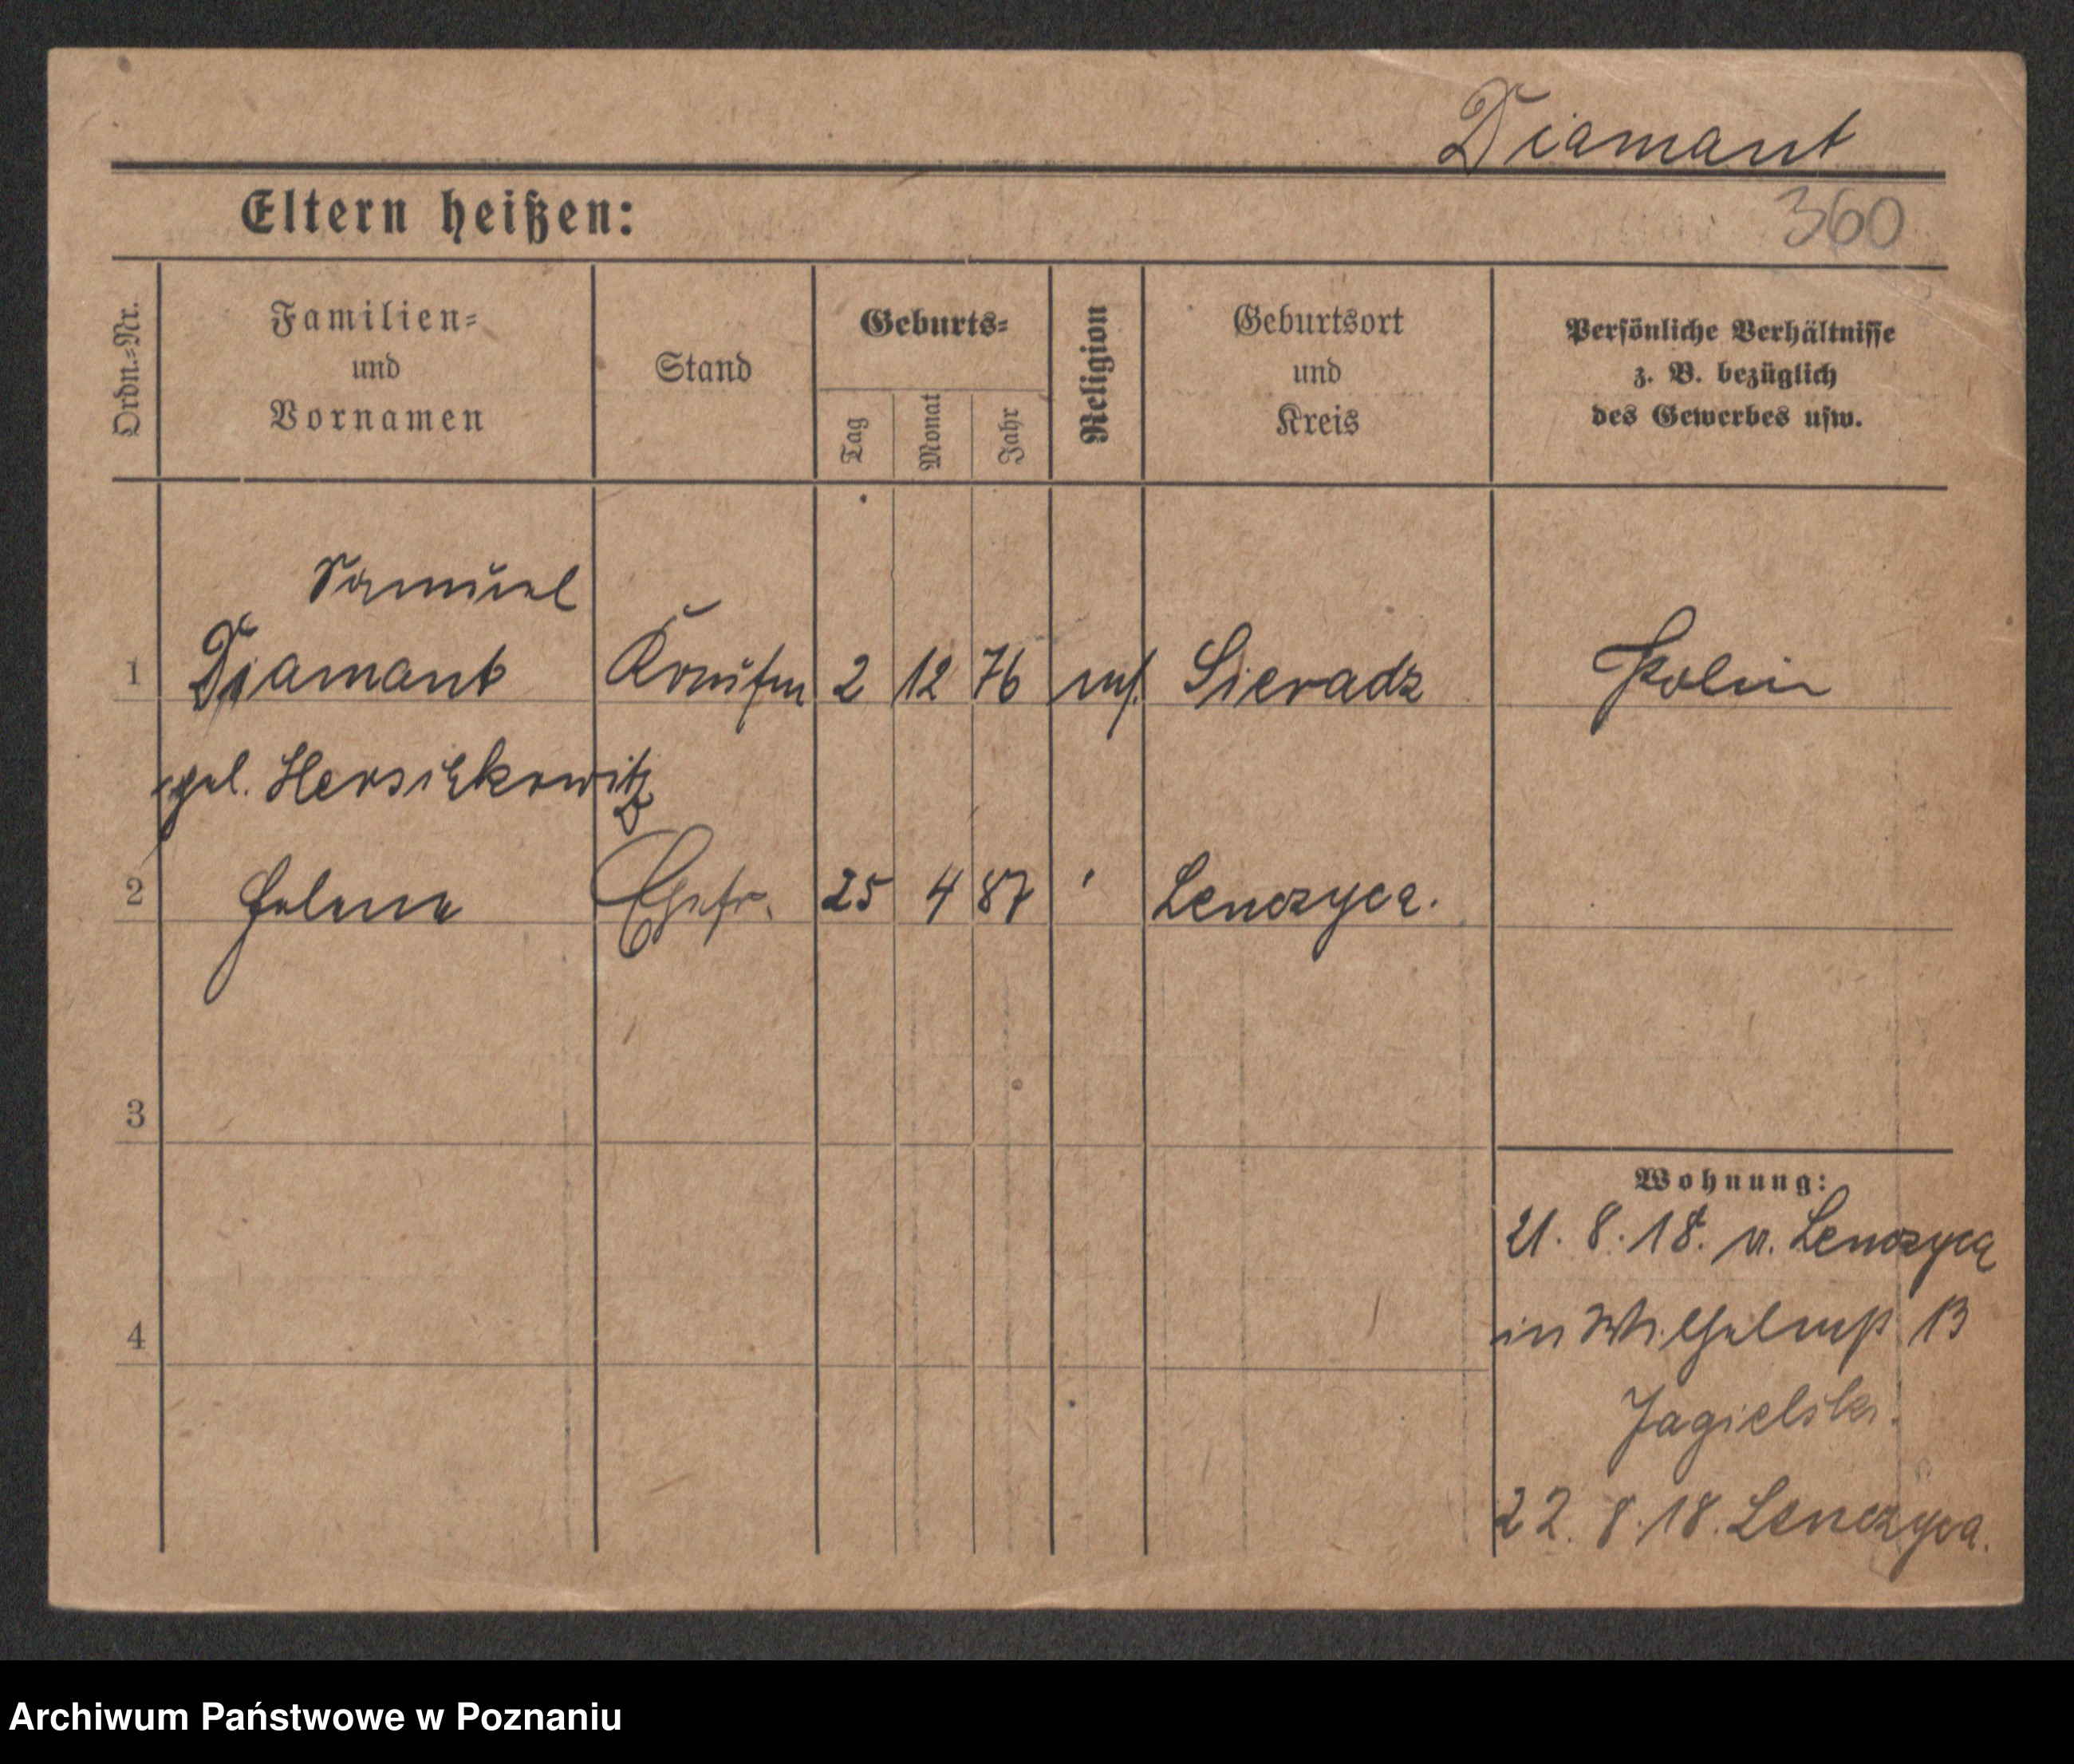 Diamant
360
Eltern heißen:
Ordn.=Nr.
Familien=
und
Vornamen
Stand
Geburts=
Tag
Monat
Jahr
Religion
Geburtsort
und
Kreis
Persönliche Verhältnisse
z. B. bezüglich
des Gewerbes usw.
Samuel
1 Diamant Kaufm 2 12 76 Sieradz
geb.
2 Helene Ehefr. 25 4 87 ' Lenczyca.
3
Wohnung:
21. 8. 18. v. Lenczyca
4
in Wilhelmst 13
Jagielski.
22. 8. 18. Lenczyca.
Archiwum Państwowe w Poznaniu